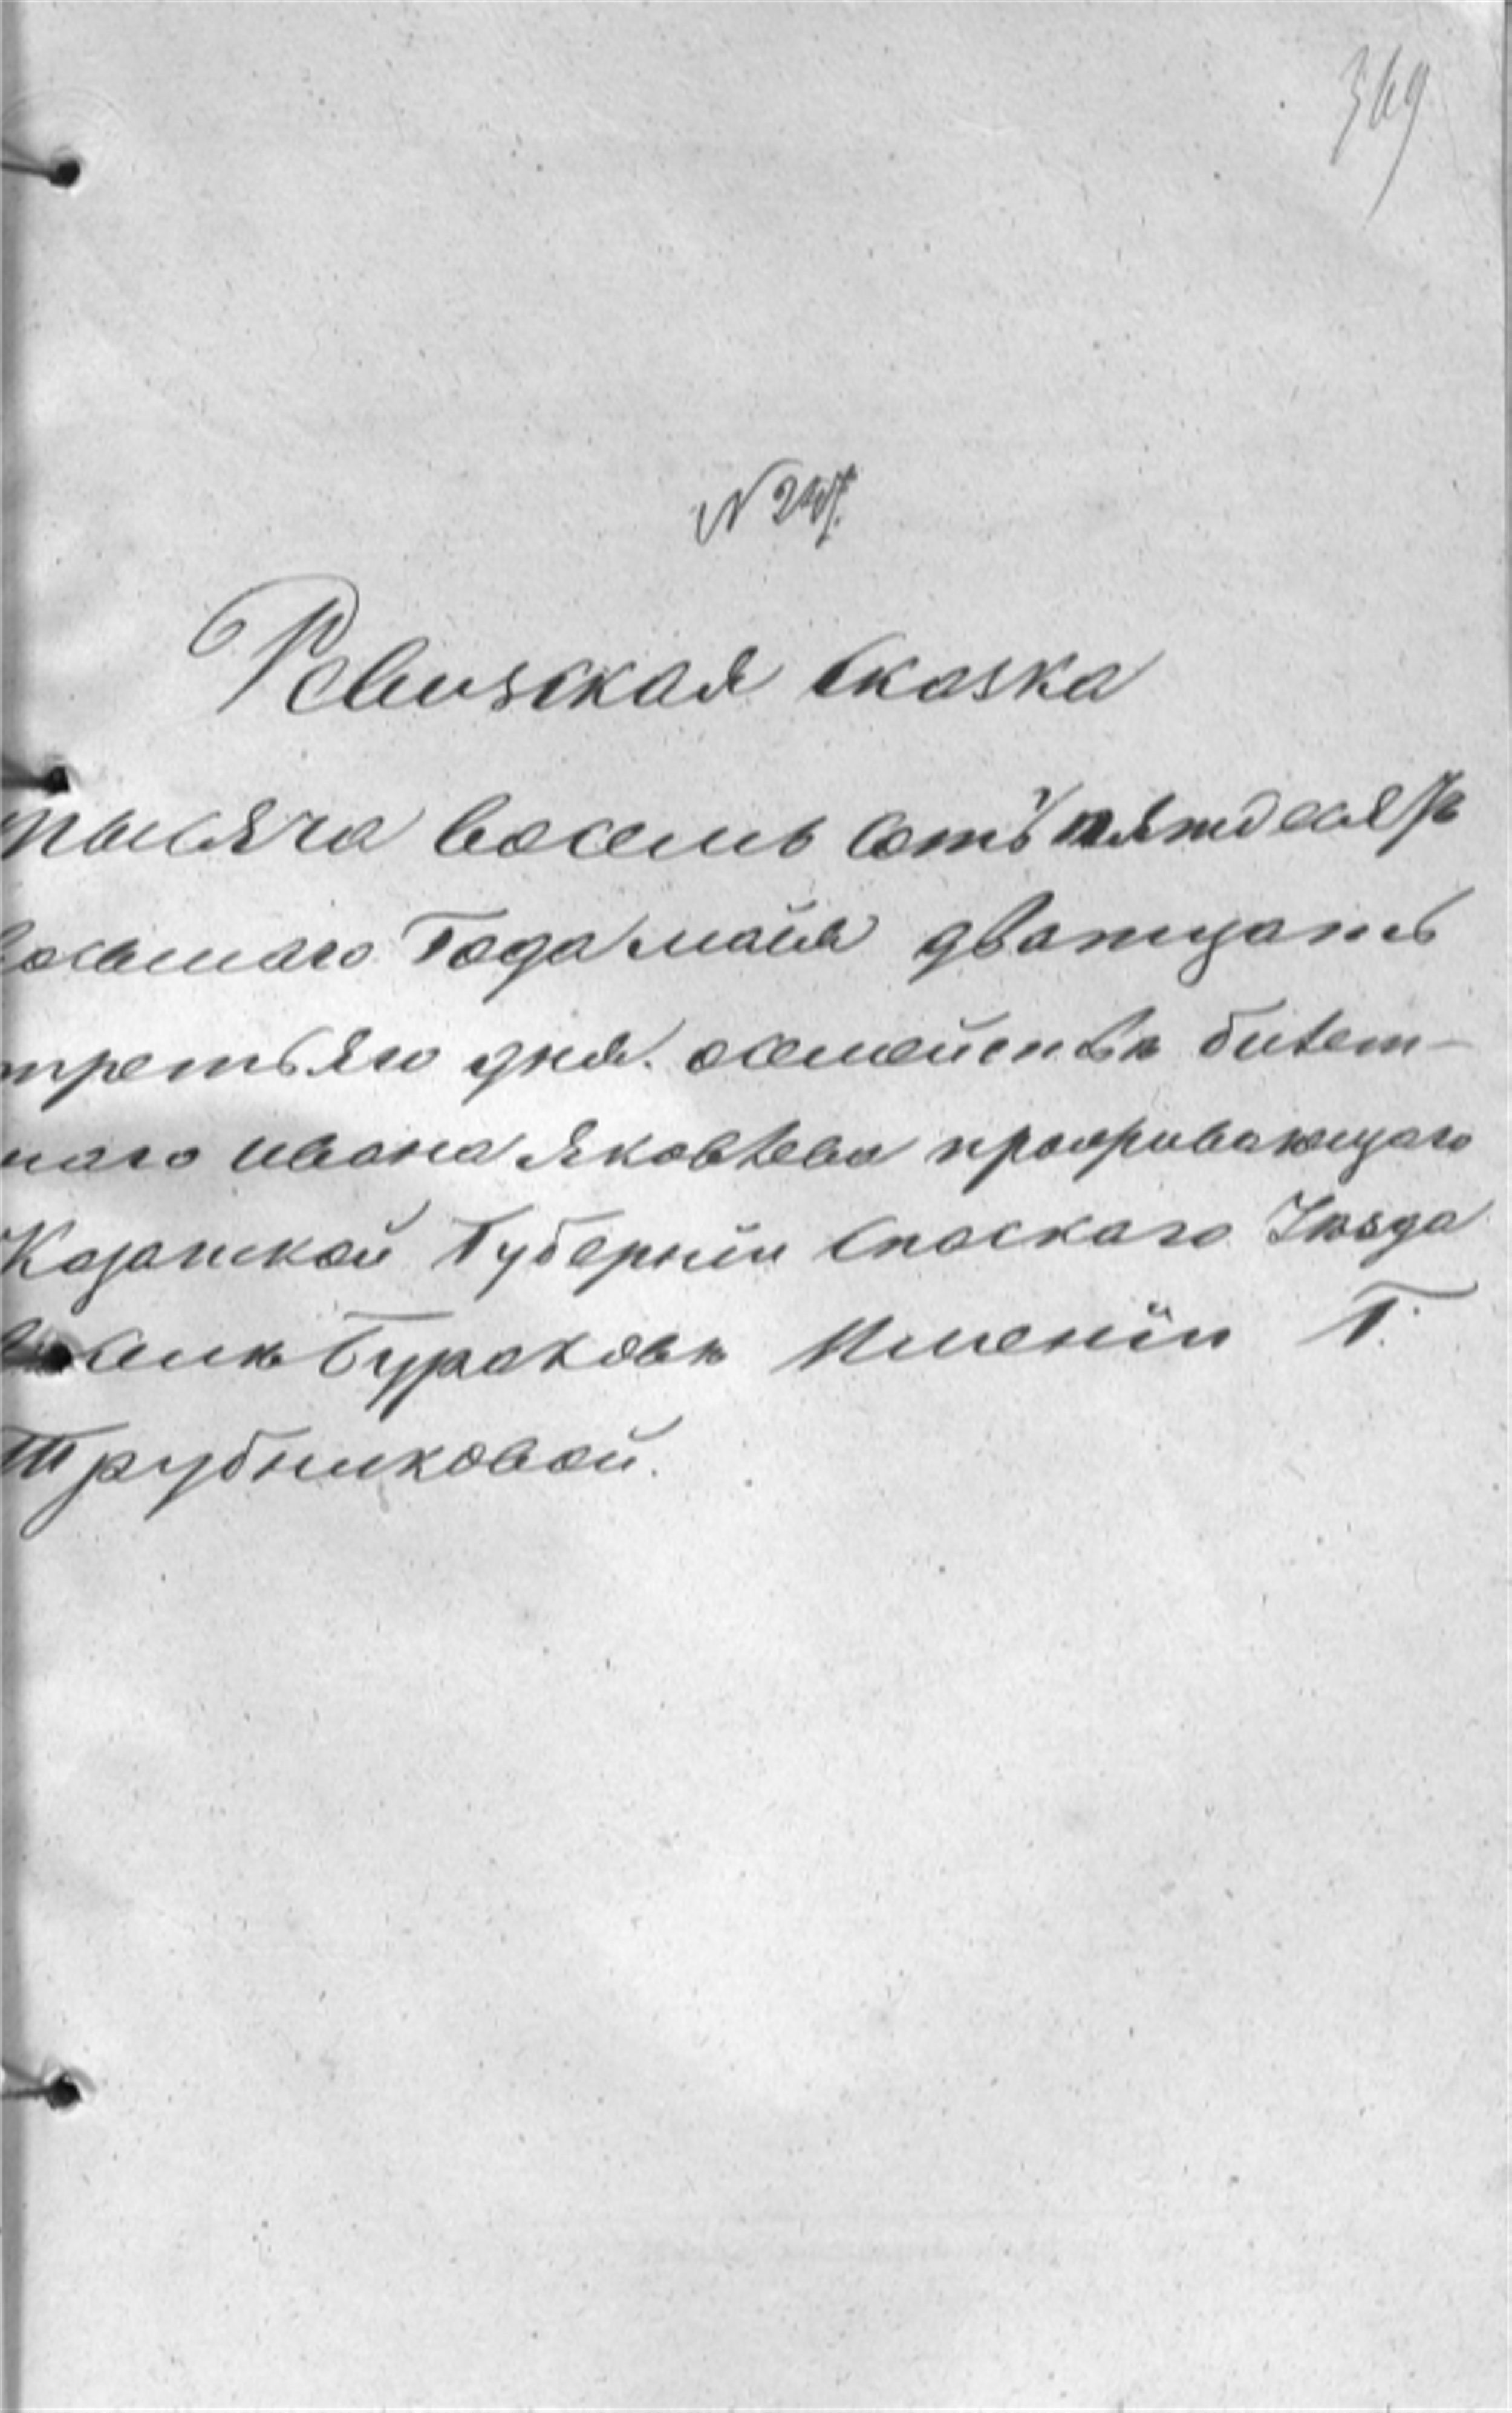 369
Ревизская Сказка
тысяча восемь сотъ пятдесятъ
восьмаго Года майя дватцать
третьяго дня. осемействѣ билет-
наго ивана яковлева проорививающаго
Казанской Губерніи Спаскаго Уѣзда
Бураковѣ Имѣніи Г.
Трубниковой.